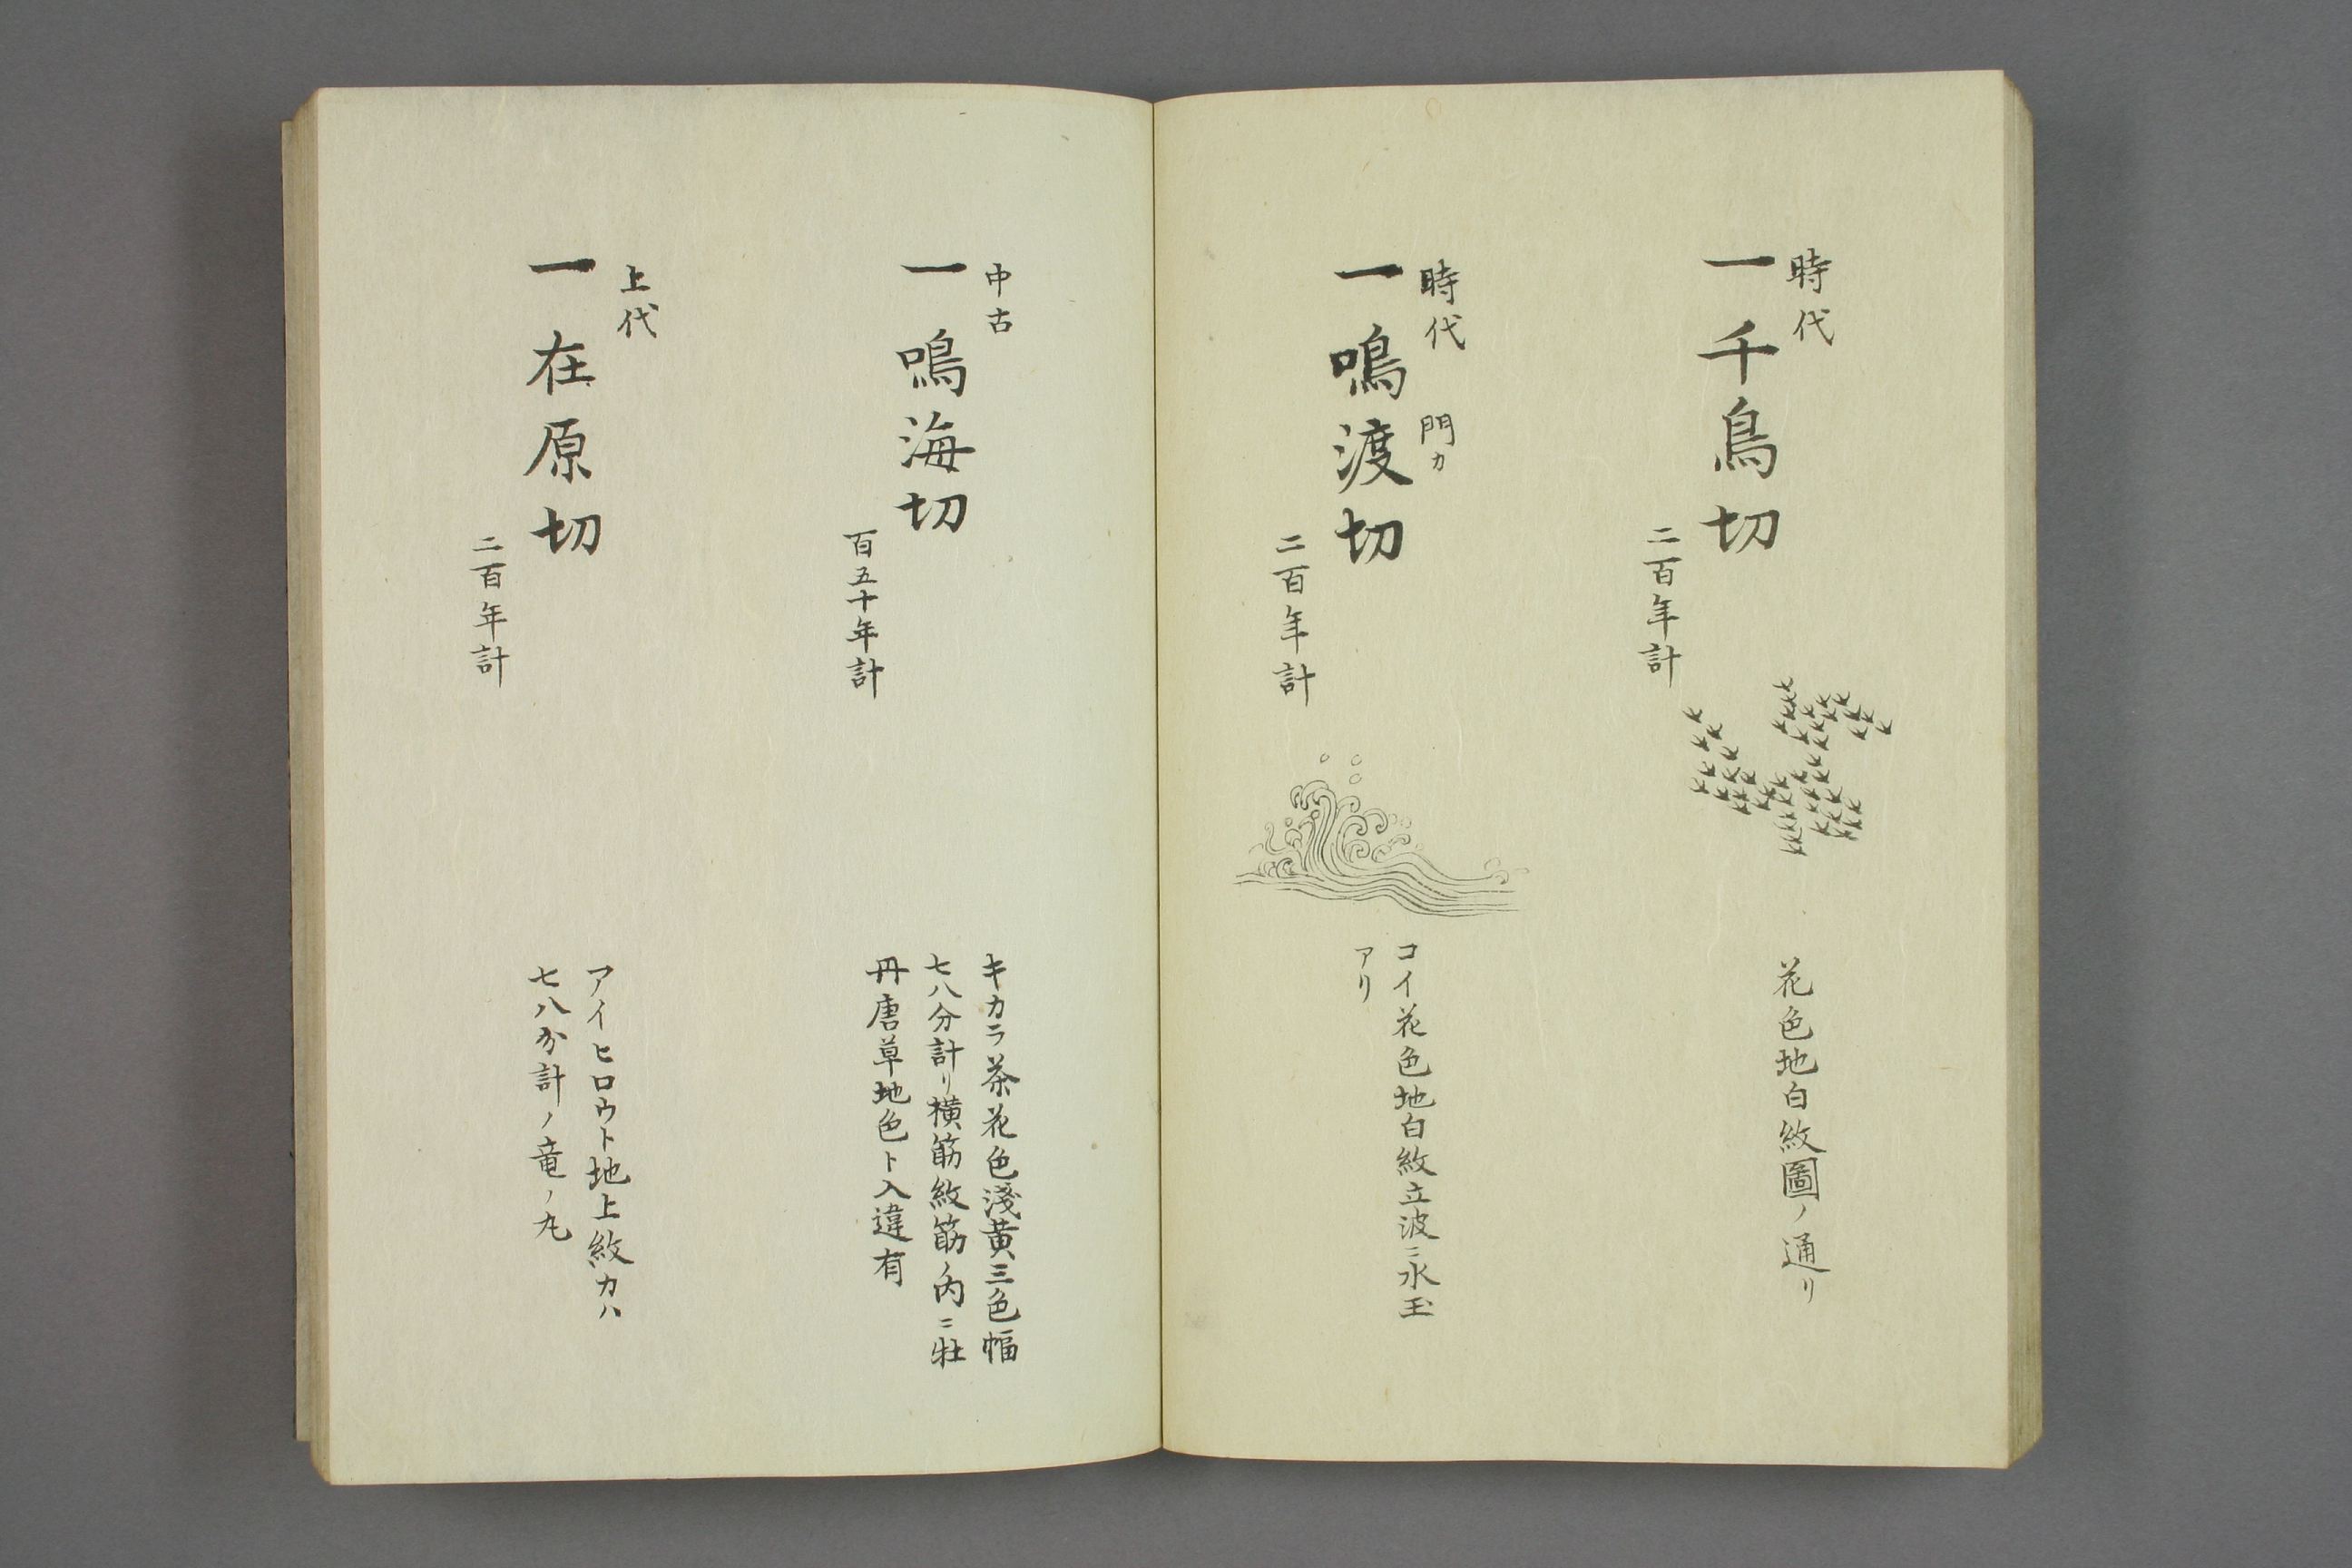 時代
一千鳥切
二百年計
花色地白紋圖ノ通リ
時代
門カ
一鳴渡切
二百年計
コイ花色地白紋立波ニ水玉
アリ
中古
一鳴海切
百五十年計
キカラ茶花色淺黄三色幅
七八分計リ横筋紋筋ノ内ニ牡
丹唐草地色ト入違有
上代
一在原切
二百年計
アイヒロウト地上紋カハ
七八分計ノ竜ノ丸